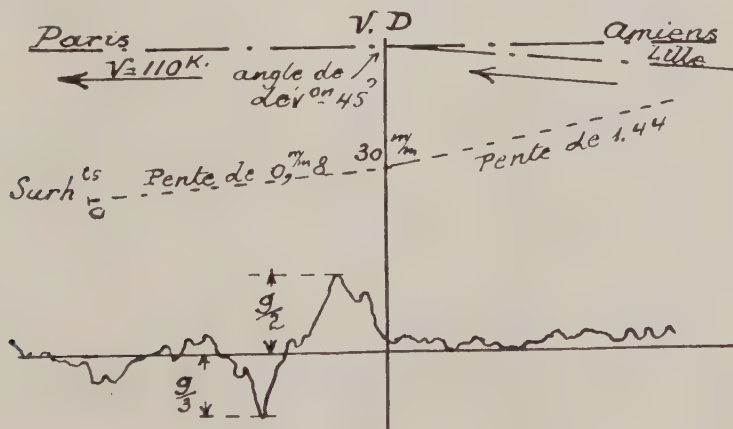 V.D
Paris
Amiens
Lille
V=110 K.
angle de
dév^on 45'
Surh^es
0
Pente de 0,^m/m 8
30 ^m/m
Pente de 1.44
g/2
g/3